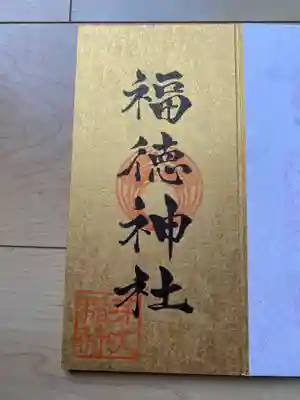 福徳神社